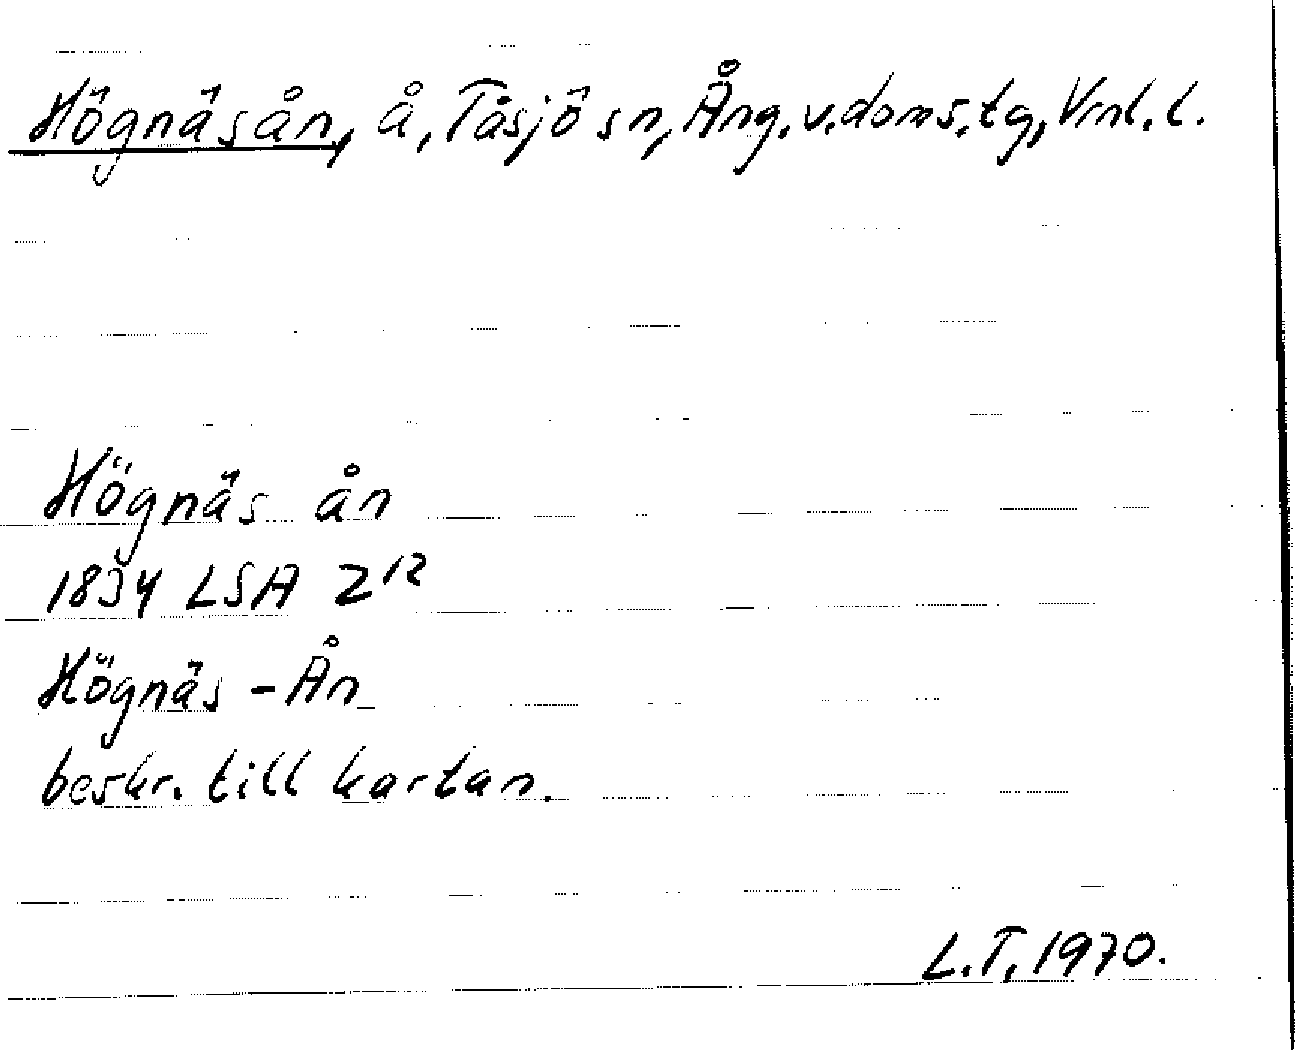 Högnäsån, å, Tåsjö sn, Ång. v. doms. tg, Vnl. l.
Högnäs ån
1834 LSA Z¹²
Högnäs - Ån
beskr. till kartan.
L.T. 1970.